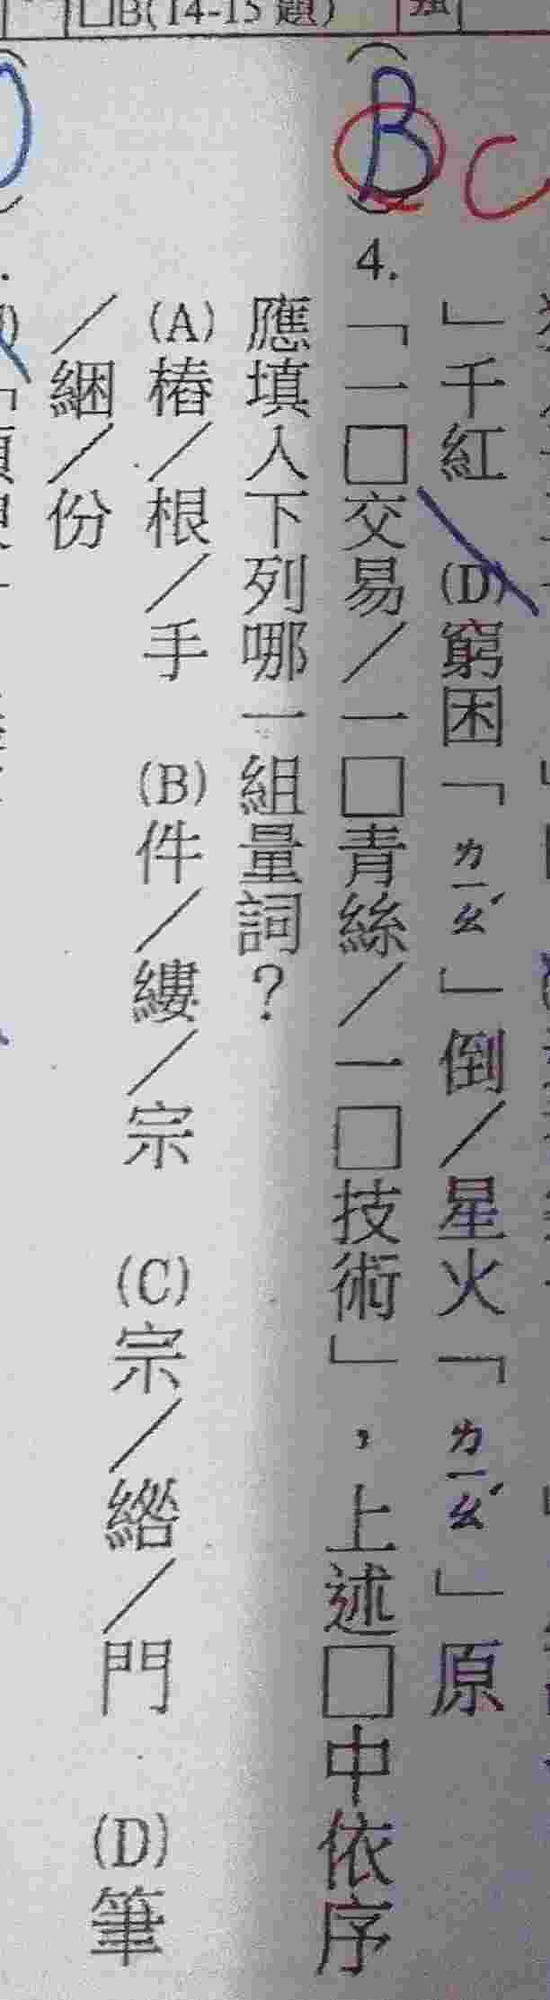 □B(14-15題)
」千紅 (D)窮困「ㄌㄧㄠˊ」倒／星火「ㄌㄧㄠˊ」原
(B) C 4.「一□交易／一□青絲／一□技術」，上述□中依序
應填入下列哪一組量詞？
(A)樁／根／手 (B)件／縷／宗 (C)宗／綹／門 (D)筆
／綑／份